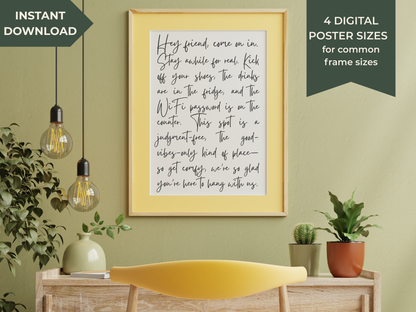 INSTANT
DOWNLOAD
4 DIGITAL
POSTER SIZES
for common
frame sizes
Hey friend, come on in.
Stay awhile for real. Kick
off your shoes, the drinks
are in the fridge, and the
WiFi password is on the
counter. This spot is a
judgment-free, the good-
vibes-only kind of place—
so get comfy, we're so glad
you're here to hang with us.